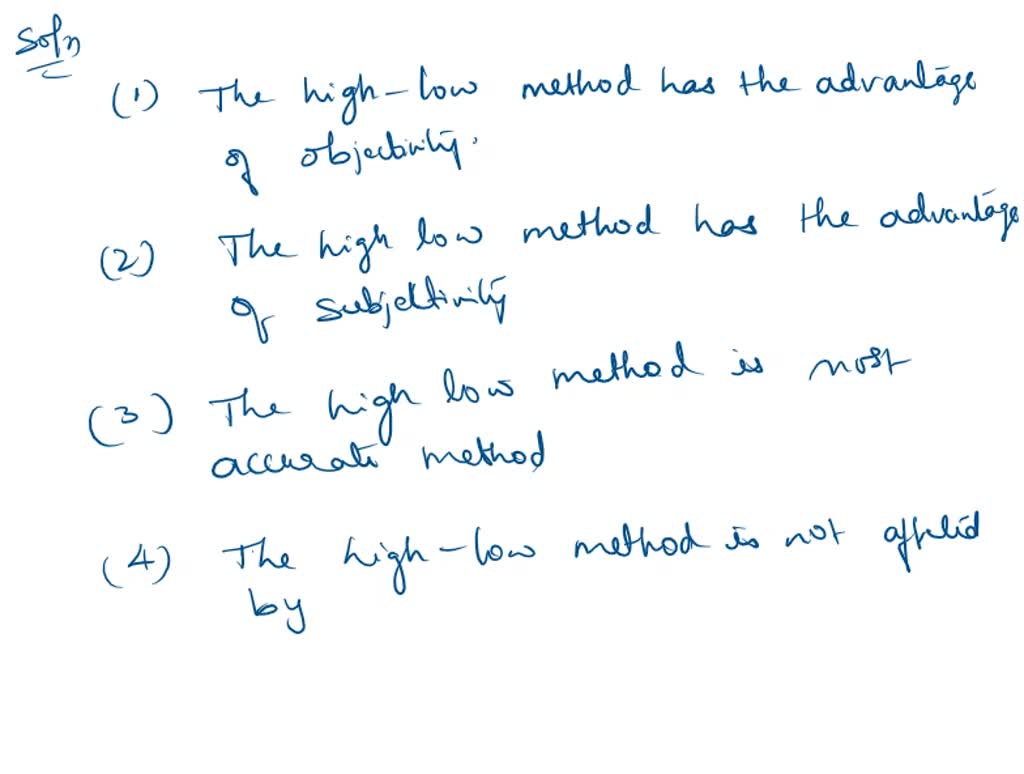 Soln
(1) The high-low method has the advantage
of objectivity.
(2) The high low method has the advantage
of subjectivity
(3) The high low method is most
accurate method
(4) The high-low method is not
by